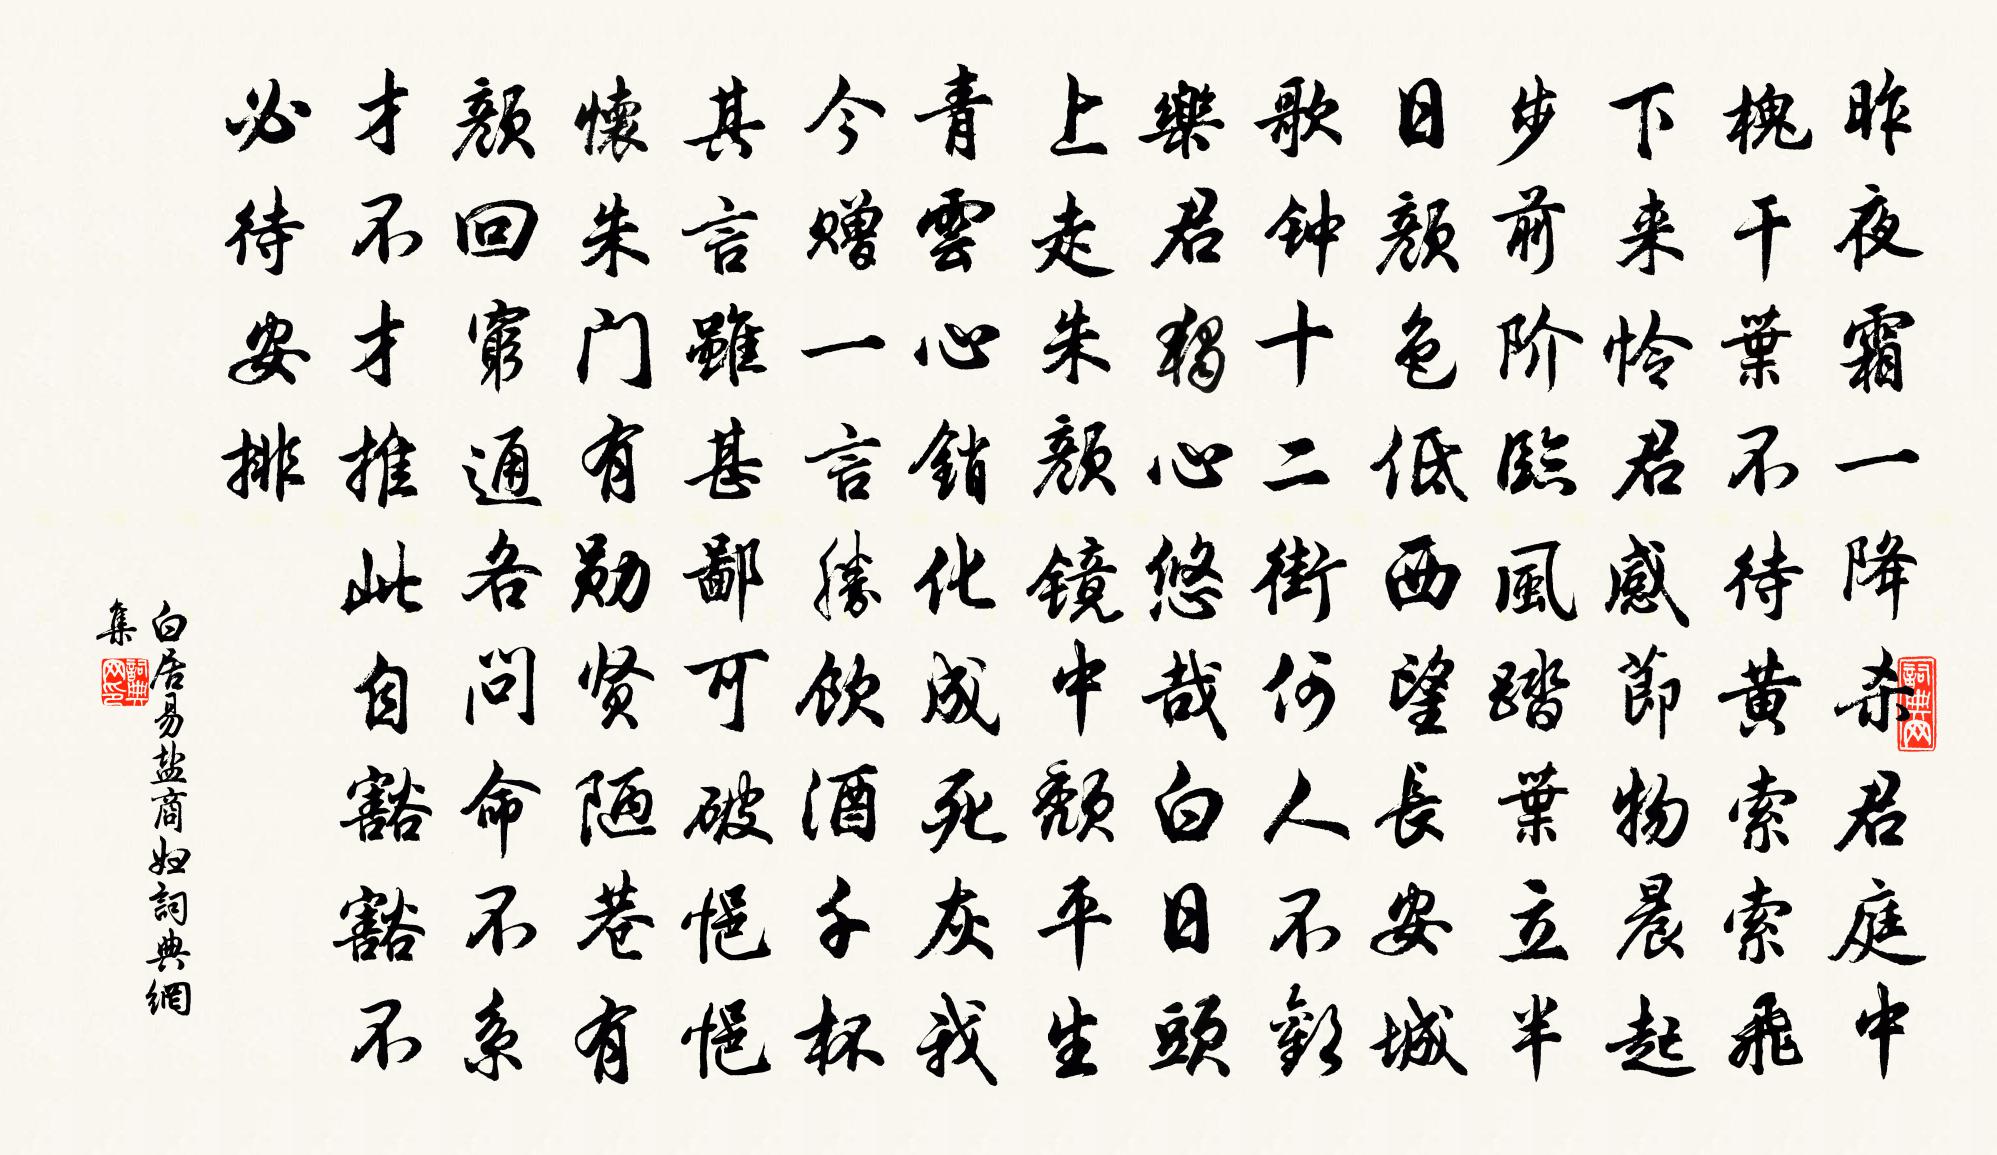 昨夜霜一降杀君庭中
槐干葉不待黄索索飛
下来怜君感節物晨起
步前阶臨風踏葉立半
日顔色低西望長安城
歌钟十二街何人不歡
樂君獨心悠哉白日頭
上走朱顔镜中颓平生
青雲心銷化成死灰我
今赠一言勝飲酒千杯
其言雖甚鄙可破悒悒
懷朱门有勋贤陋巷有
顔回窮通各问命不系
才不才推此自豁豁不
必待安排
白居易盐商妇詞典網
集
詞典网
詞典网印